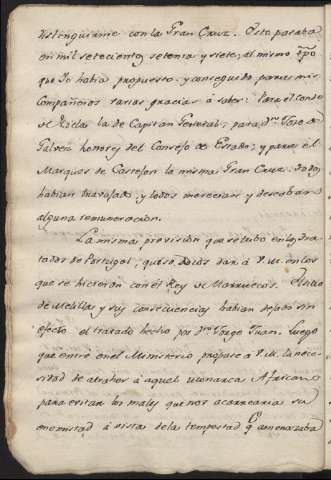 distinguirme con la Gran Cruz. Esto pasaba
en mil setecientos setenta y siete, al mismo tpo
que Yo habia propuesto y conseguido para mis
Compañeros varias gracias á saber: para el conde
de Ricla la de Capitan General; para Dn. Jose de
Galvez honores del Consejo de Estado; y para el
Marques de Castejon la misma Gran Cruz: todos
habian trabajado, y todos merecian y deseaban
alguna remuneracion.
La misma prevision que se tubo en los tra-
tados de Portugal, quiso Dios dar á V.M. en los
que se hicieron con el Rey de Marruecos. El sitio
de Melilla y sus consecuencias habian dejado sin
efecto el tratado hecho por Dn. Jorge Juan. Luego
que entré en el Ministerio propuse á V.M. la nece-
sidad de atraher á aquel Monarca Africano
para evitar los males que nos acarrearia su
enemistad á vista de la tempestad q amenazaba